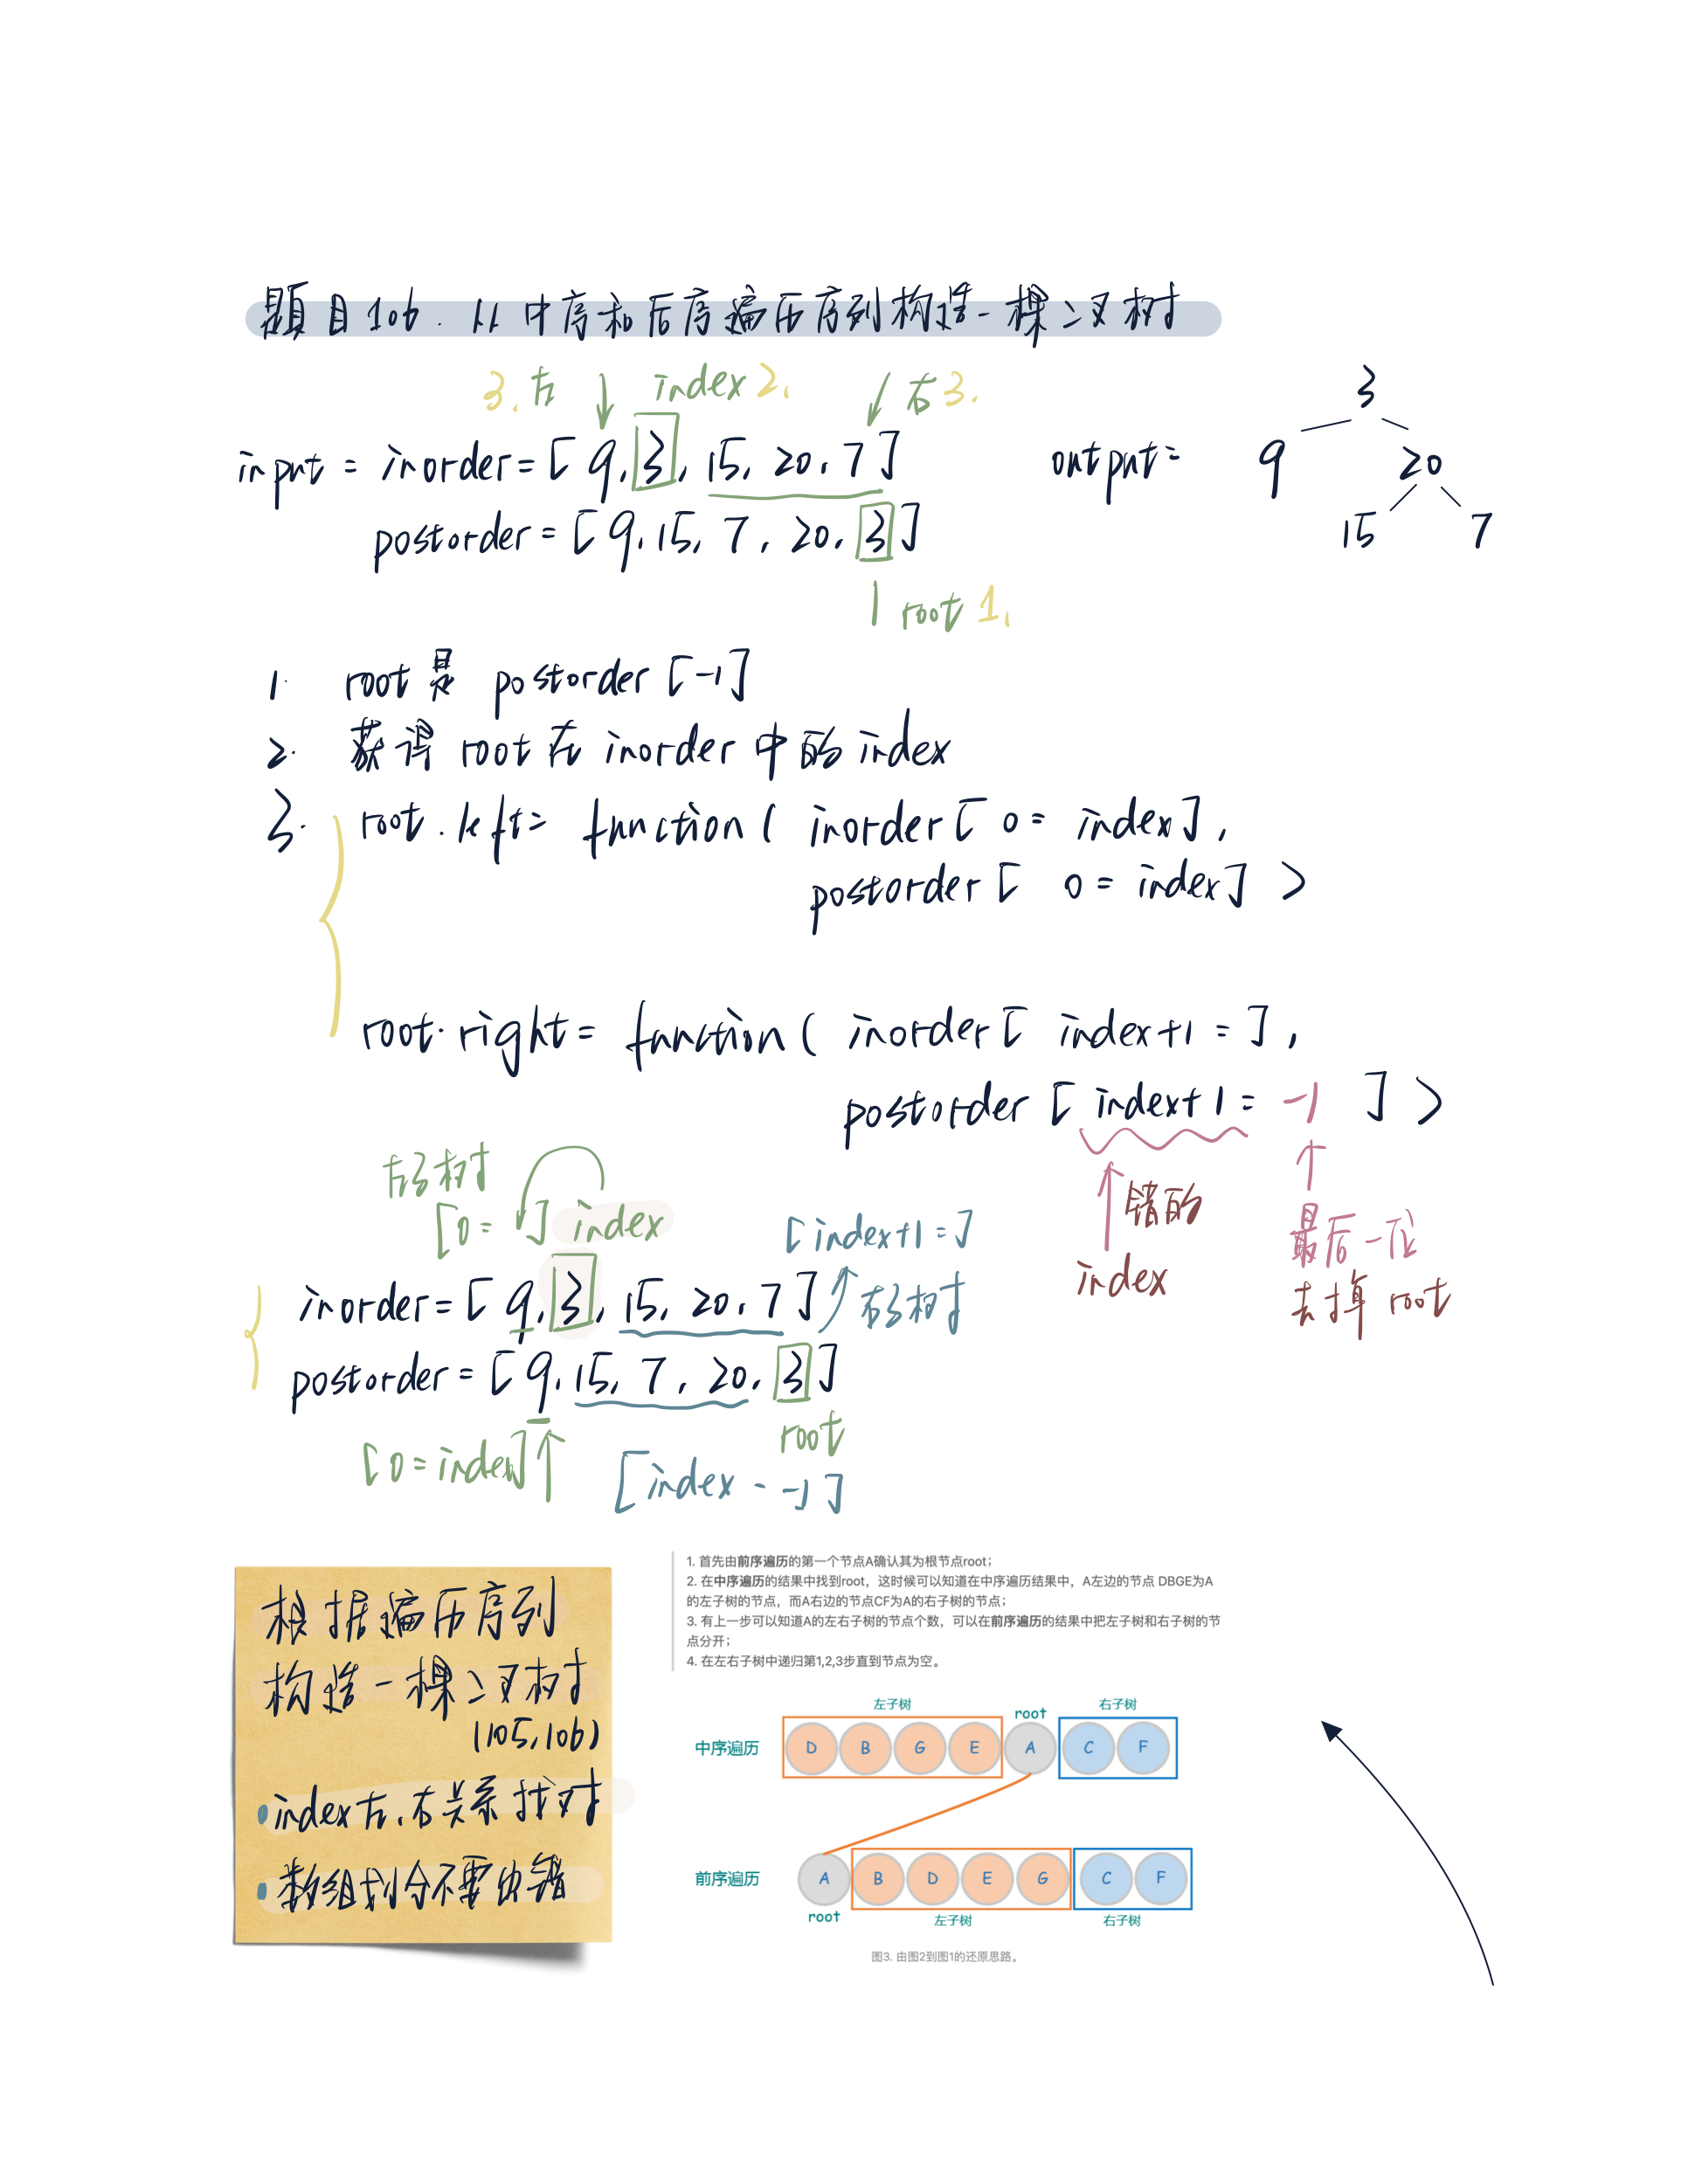 题目106. 从中序和后序遍历序列构造一棵二叉树
3. 左 index 2. 右 3.
input = inorder = [ 9, 3, 15, 20, 7 ]
postorder = [ 9, 15, 7, 20, 3 ]
root 1.
output =
3
9 20
15 7
1. root是 postorder [-1]
2. 获得 root 在 inorder 中的 index
3. root.left = function ( inorder [ 0 : index ],
postorder [ 0 : index ] )
root.right = function ( inorder [ index+1 : ],
postorder [ index+1 : -1 ] )
错的
index
最后一位
去掉 root
左子树
[ 0 : ] index
[ index+1 : ]
右子树
inorder = [ 9, 3, 15, 20, 7 ]
postorder = [ 9, 15, 7, 20, 3 ]
root
[ 0 : index ]
[ index : -1 ]
根据遍历序列
构造一棵二叉树
(105, 106)
index左、右关系找对
数组划分不要出错
1. 首先由前序遍历的第一个节点A确认其为根节点root；
2. 在中序遍历的结果中找到root，这时候可以知道在中序遍历结果中，A左边的节点 DBGE为A
的左子树的节点，而A右边的节点CF为A的右子树的节点；
3. 有上一步可以知道A的左右子树的节点个数，可以在前序遍历的结果中把左子树和右子树的节
点分开；
4. 在左右子树中递归第1,2,3步直到节点为空。
左子树 root 右子树
中序遍历 D B G E A C F
前序遍历 A B D E G C F
root 左子树 右子树
图3. 由图2到图1的还原思路。